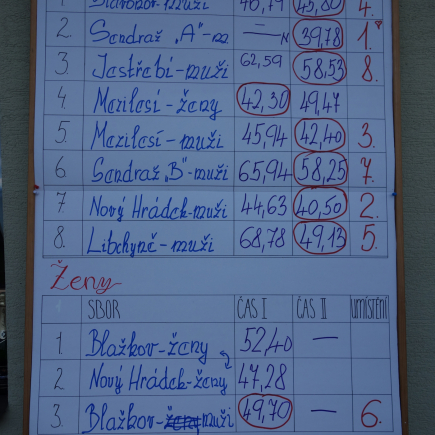 1. muži 46,79 45,80 4.
2. Sendraž „A"-m — N 39,78 1.
3. Jestřebí-muži 62,59 58,53 8.
4. Mezilesí-ženy 42,30 49,47
5. Mezilesí-muži 45,94 42,40 3.
6. Sendraž „B"-muži 65,94 58,25 7.
7. Nový Hrádek-muži 44,63 40,50 2.
8. Libchyně-muži 68,78 49,13 5.
Ženy
SBOR ČAS I ČAS II UMÍSTĚNÍ
1. Blažkov-ženy 52,40 —
2. Nový Hrádek-ženy 47,28
3. Blažkov-ženy muži 49,70 — 6.